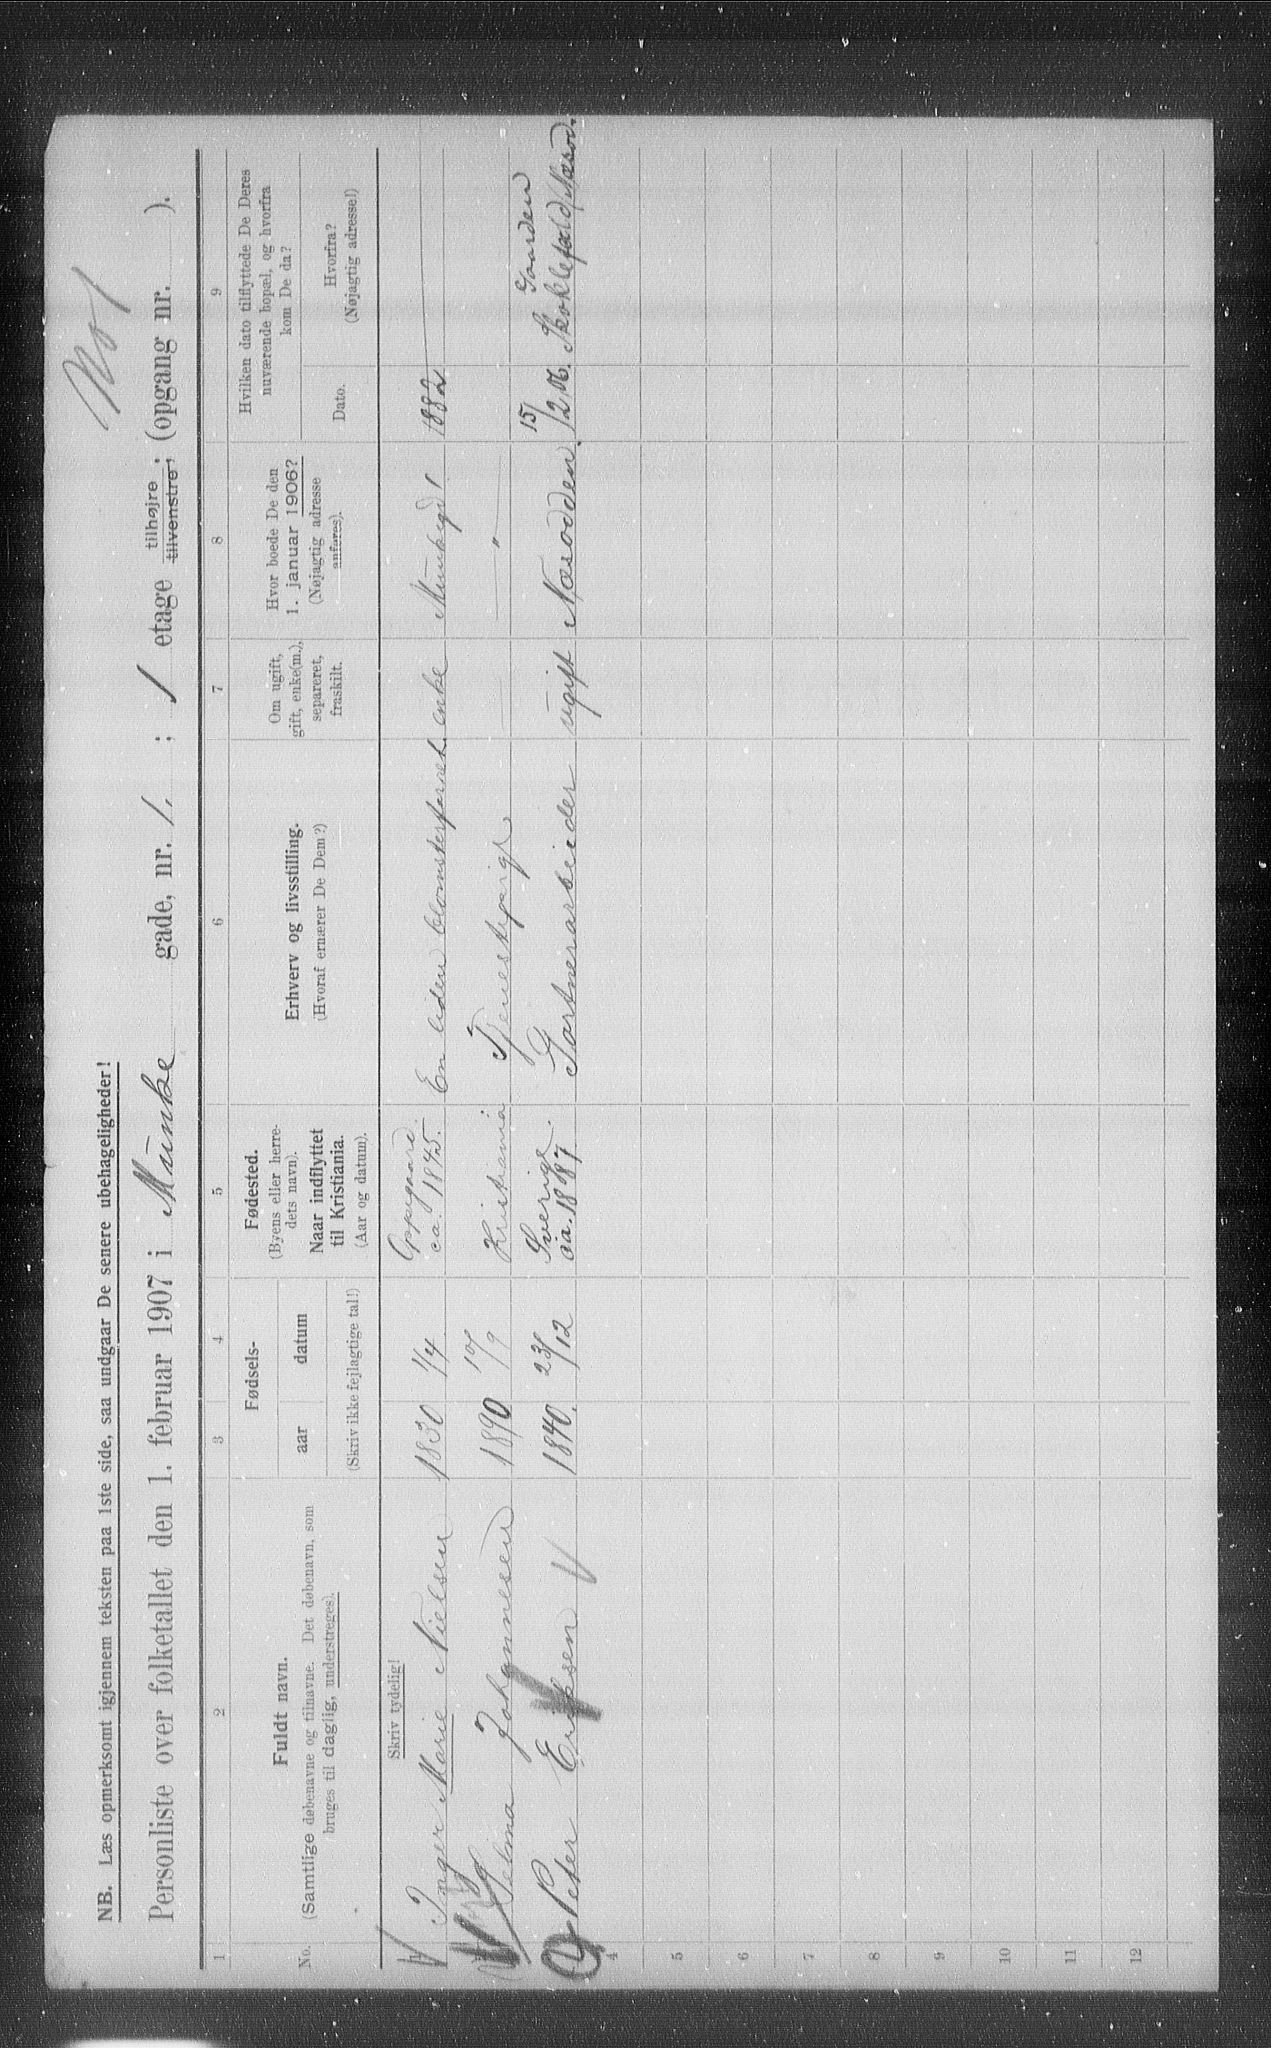 NB. Læs opmerksomt igjennem teksten paa 1ste side, saa undgaar De senere ubehageligheder!
Personliste over folketallet den 1. februar 1907 i Munke gade, nr. 1. ; 1 etage tilhøjre ; tilvenstre ; (opgang nr. ).
1 2 3 4 5 6 7 8 9
No.
Fuldt navn.
(Samtlige døbenavne og tilnavne. Det døbenavn, som
bruges til daglig, understreges).
Fødsels-
aar datum
(Skriv ikke fejlagtige tal!)
Fødested.
(Byens eller herre-
dets navn).
Naar indflyttet
til Kristiania.
(Aar og datum).
Erhverv og livsstilling.
(Hvoraf ernærer De Dem?)
Om ugift,
gift, enke(m.),
separeret,
fraskilt.
Hvor boede De den
1. januar 1906?
(Nøjagtig adresse
anføres).
Hvilken dato tilflyttede De Deres
nuværende bopæl, og hvorfra
kom De da?
Dato.
Hvorfra?
(Nøjagtig adresse!)
Skriv tydelig!
Inger Marie Nielsen 1830 1/4 Oppegaard. ca. 1845. En liden blomsterforret. enke Munkegd 1. 1882
Selma Johannesen 1890 10/9 Kristiania Tjenestepige — — " —
Peter Eriksen 1840. 23/12 Sverige. ca. 1887 Gartnerarbeider ugift Næsodden. 15/12.06. Gaarden Skoklefald Næsod.
4
5
6
7
8
9
10
11
12